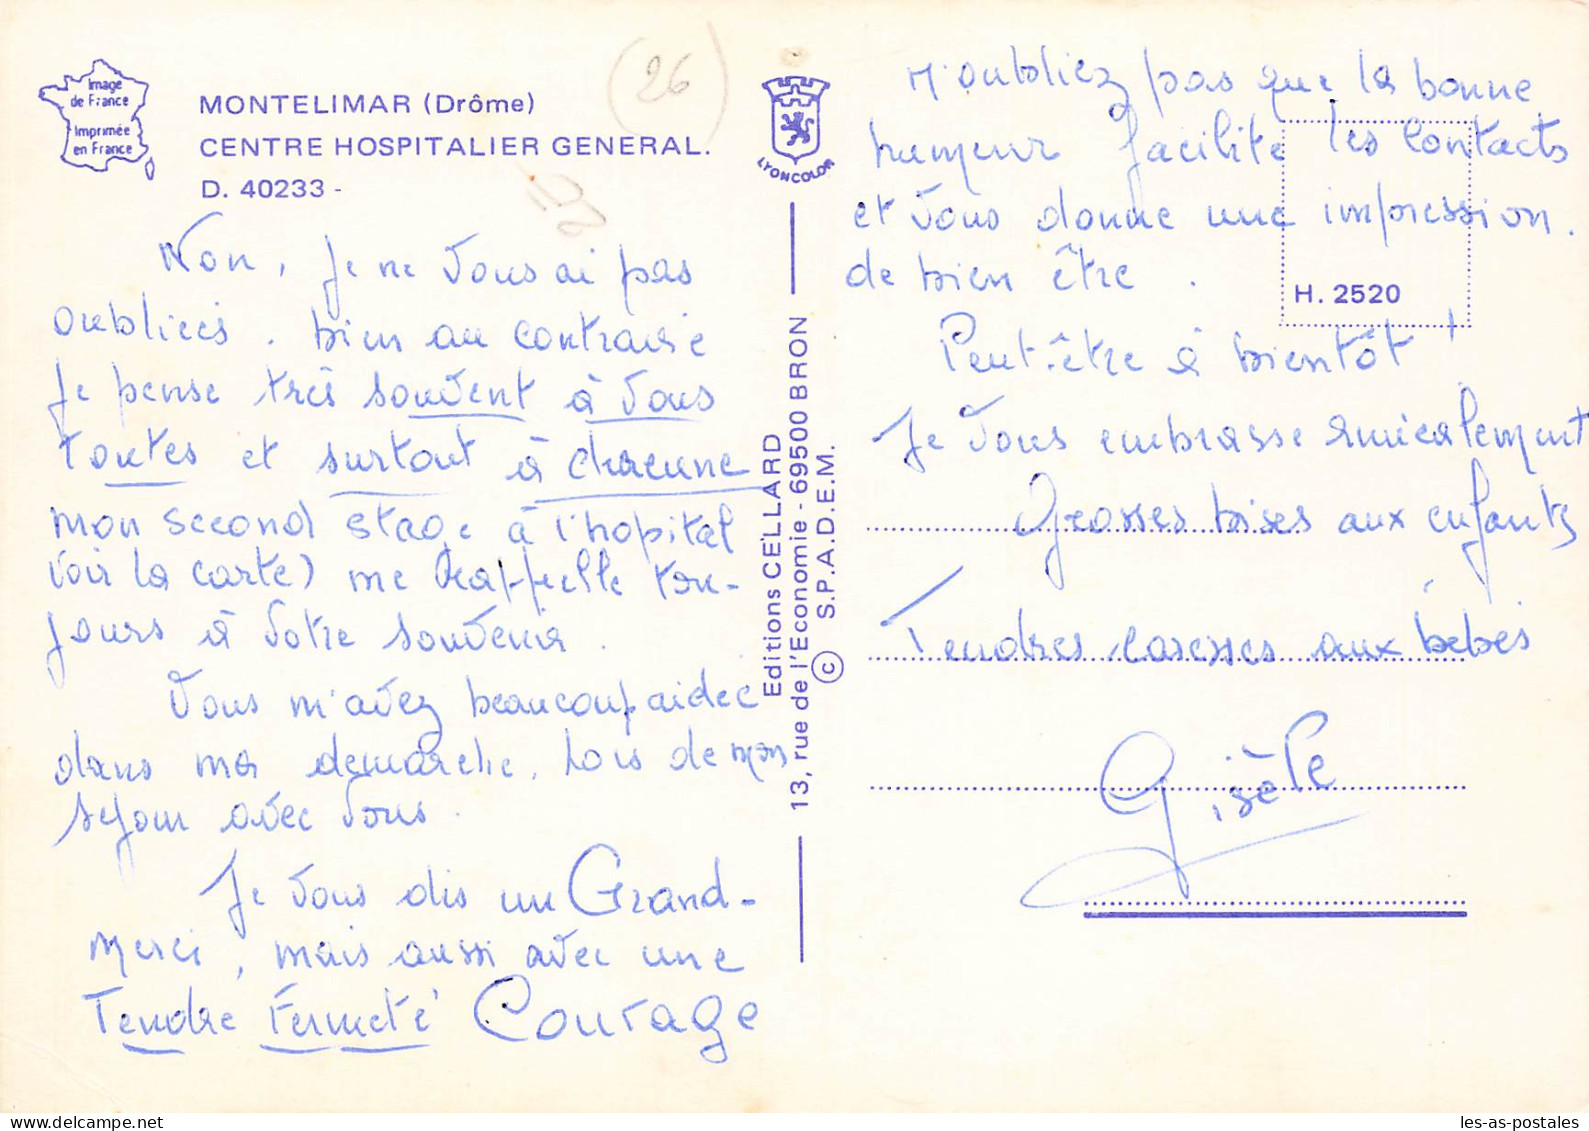 Image
de France
Imprimée
en France
MONTELIMAR (Drôme)
CENTRE HOSPITALIER GENERAL.
D. 40233 -
(26)
Non, je ne vous ai pas
oubliées. bien au contraire
je pense très souvent à vous
toutes et surtout à chacune
mon second stage à l'hopital
voir la carte) me rappelle tou-
jours à votre souvenir.
Vous m'avez beaucoup aidée
dans ma démarche, lors de mon
séjour avec vous.
Je vous dis un Grand-
Merci, mais aussi avec une
Tendre Fermeté Courage
LYONCOLOR
Editions CELLARD
13, rue de l'Economie - 69500 BRON
© S.P.A.D.E.M.
N'oubliez pas que la bonne
humeur facilite les contacts
et vous donne une impression.
de bien être.
H. 2520
Peut-être à bientôt !
Je vous embrasse amicalement
Grosses bises aux enfants
Tendres caresses aux bébés
Gisèle
les-as-postales